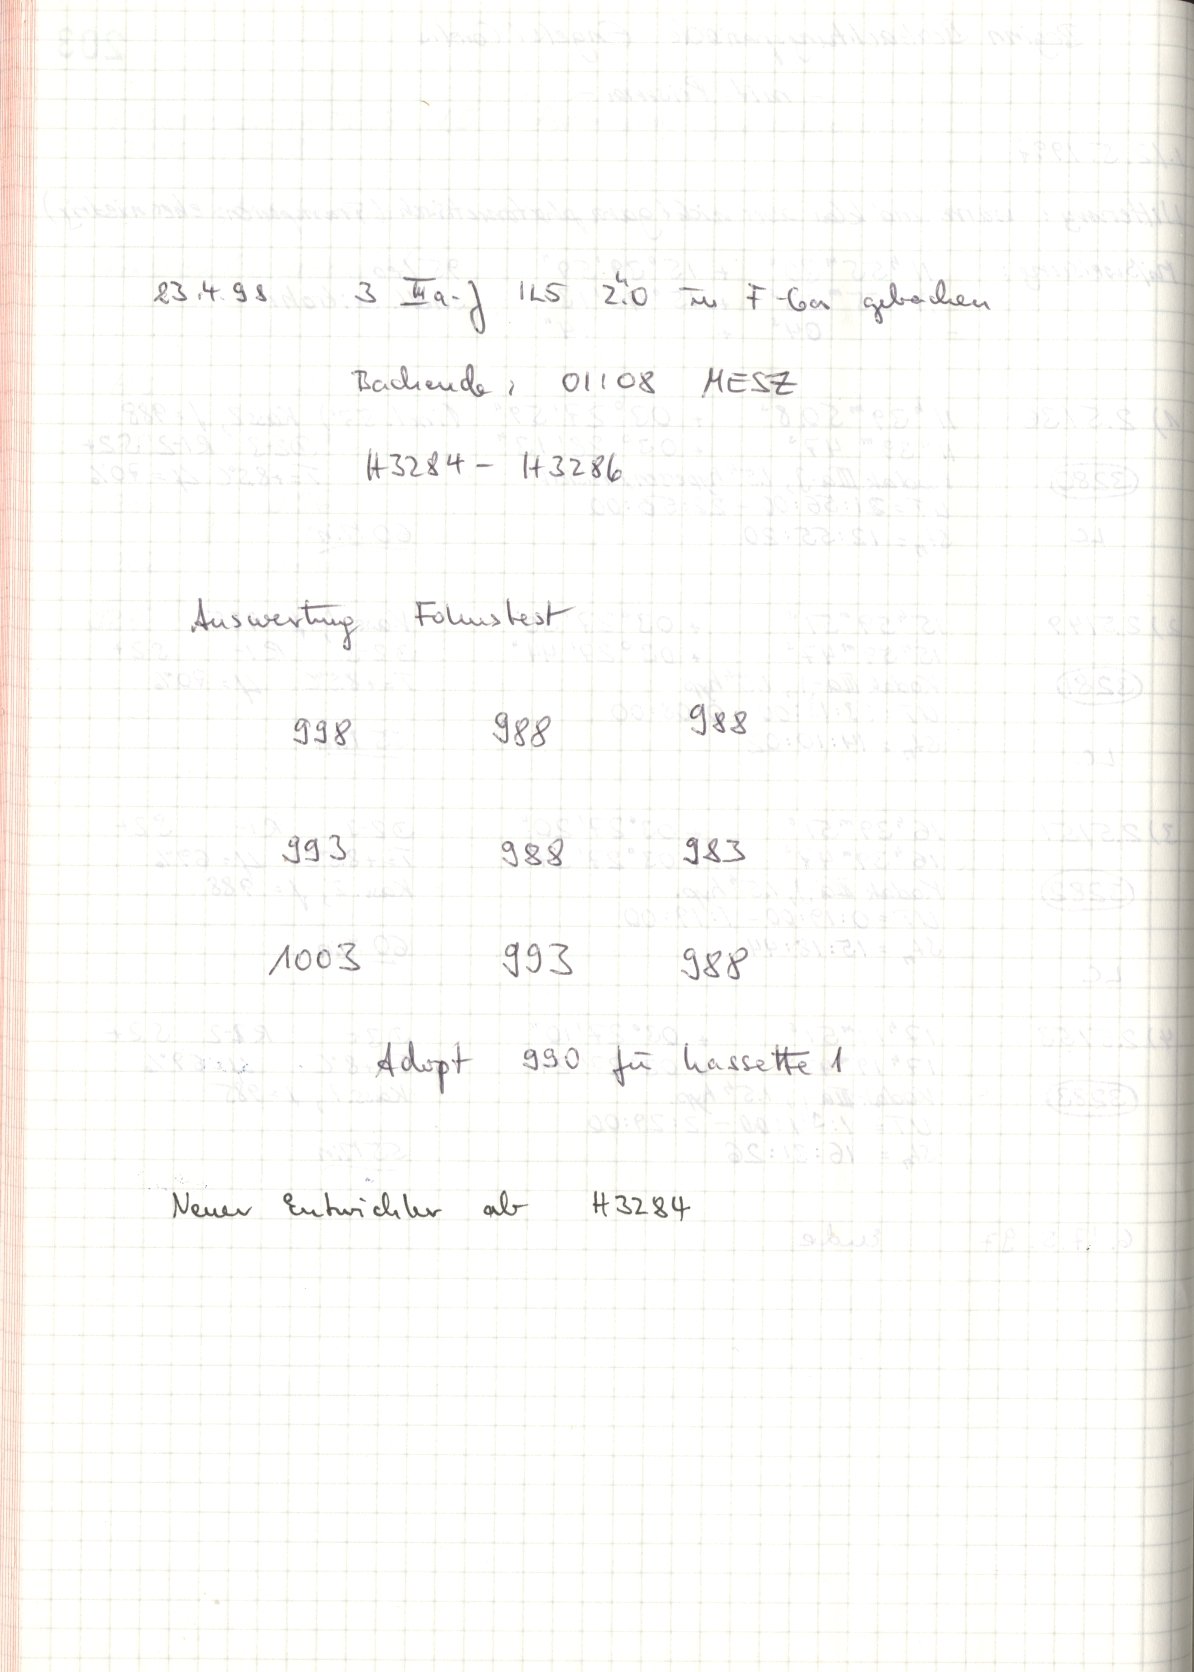 23.4.98 3 IIIa-J IL5 2.ʰ0 im F-Gas gebacken
Backende: 01:08 MESZ
H3284 - H3286
Auswertung Fokustest
998 988 988
993 988 983
1003 993 988
Adopt 990 für Kassette 1
Neuer Entwickler ab H3284